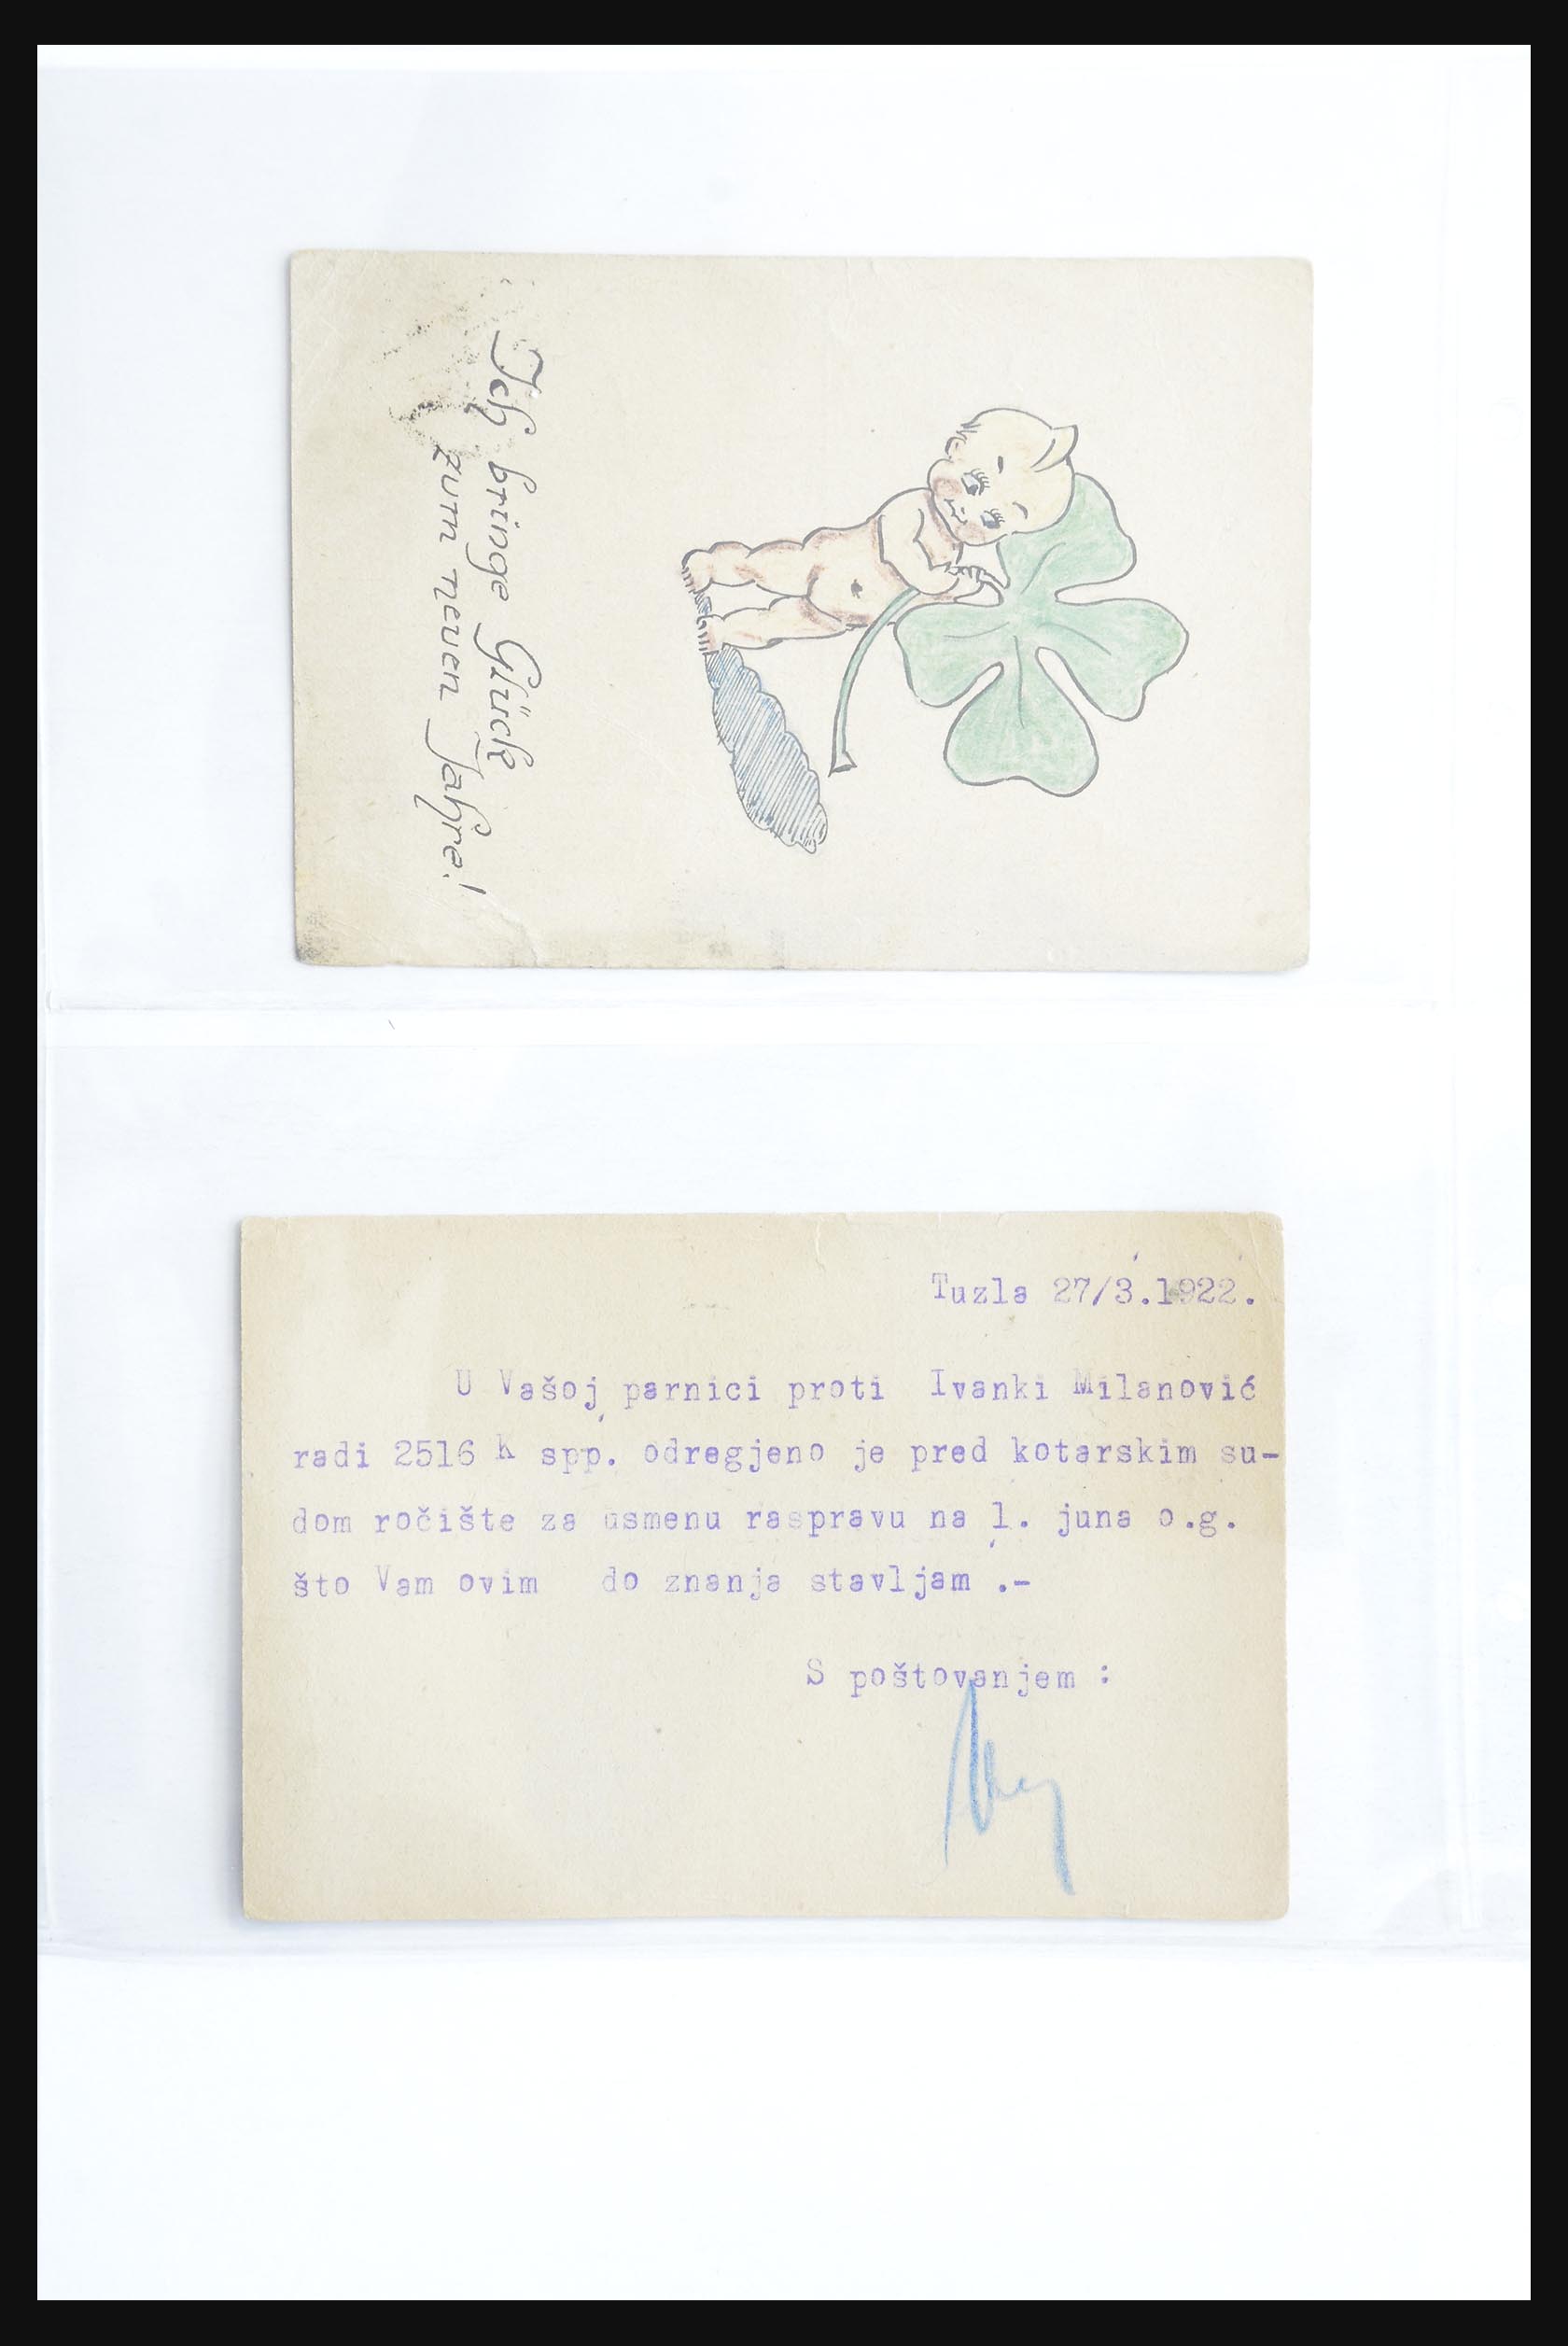 Ich bringe Glück
zum neuen Jahre!
Tuzla 27/3.1922.
U Vašoj parnici proti Ivanki Milanović
radi 2516 K spp. odregjeno je pred kotarskim su-
dom ročište za usmenu raspravu na 1. juna o.g.
što Vam ovim do znanja stavljam .-
S poštovanjem :